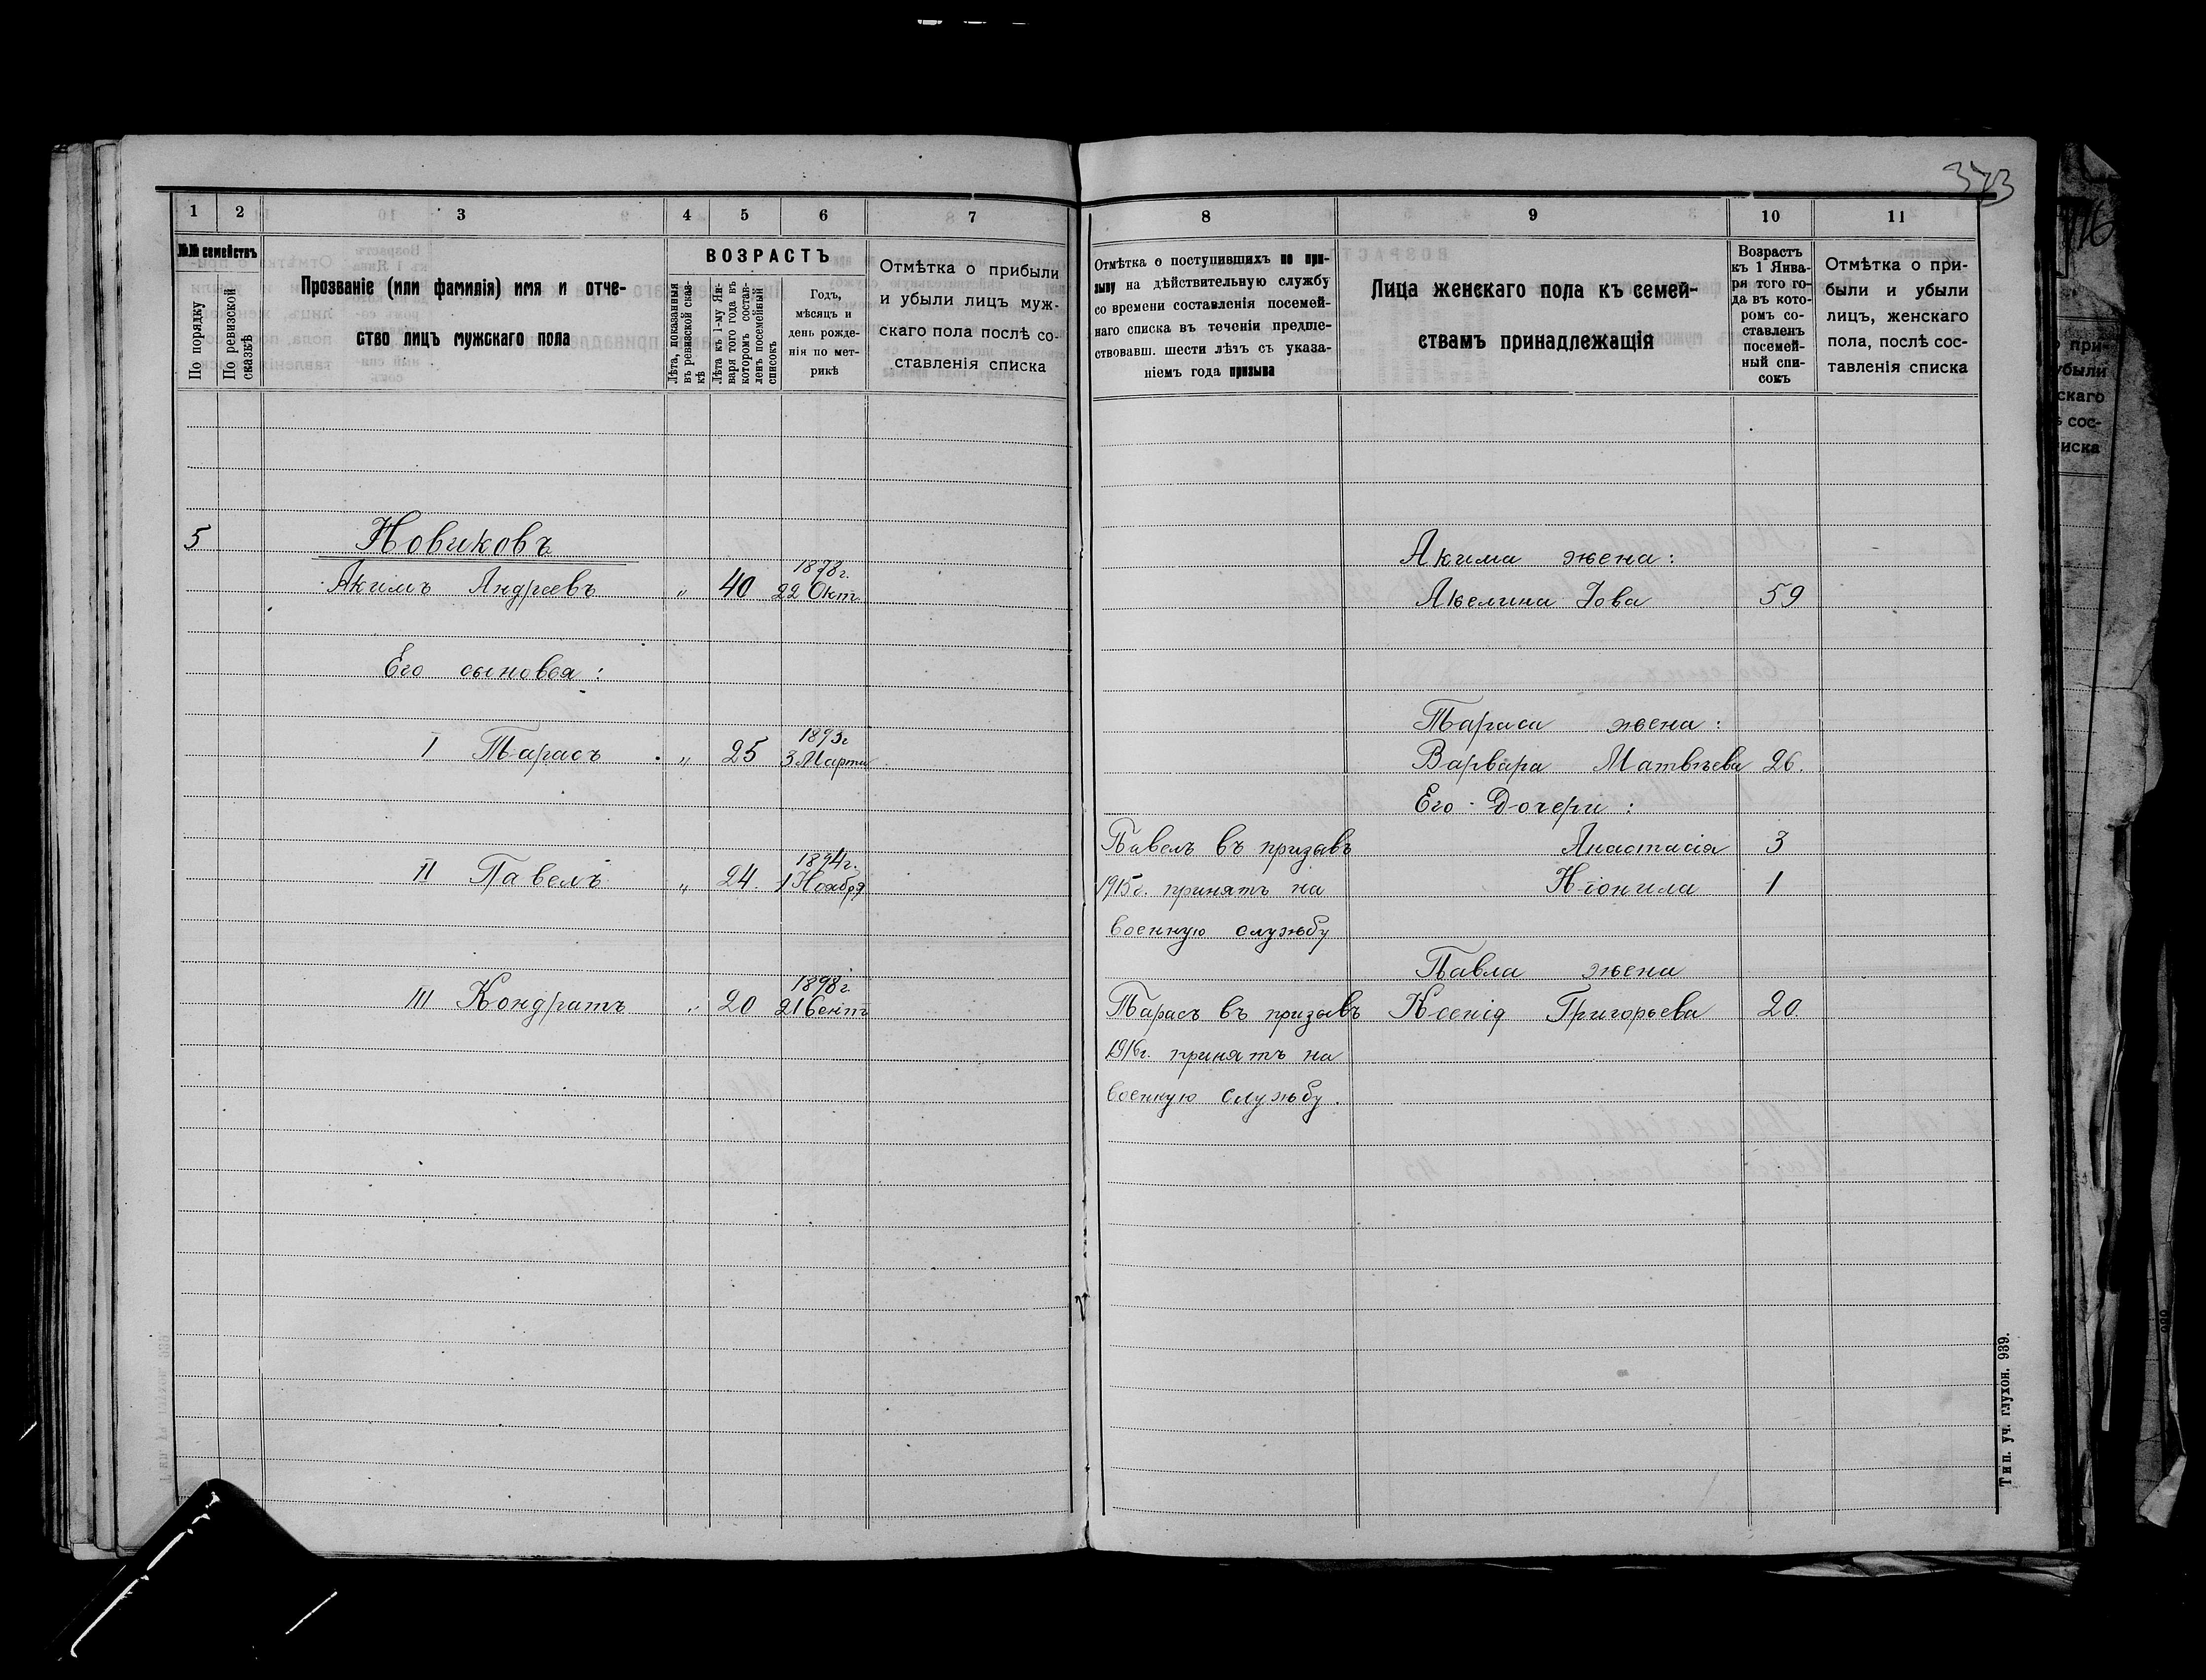 373
1 2 3 4 5 6 7
№№ семействъ
По порядку
По ревизской сказкѣ
Прозваніе (или фамилія) имя и отче-
ство лицъ мужскаго пола
ВОЗРАСТЪ
Лѣта, показанныя
въ ревизской сказ-
кѣ
Лѣта къ 1-му Ян-
варя того года въ
которомъ состав-
ленъ посемейный
списокъ
Годъ,
мѣсяцъ и
день рожде-
нія по мет-
рикѣ
Отмѣтка о прибыли
и убыли лицъ муж-
скаго пола послѣ со-
ставленія списка
5 Новиковъ
1878г.
Акимъ Андреевъ „ 40 22 Окт.
Его сыновья:
1893г
I Тарасъ „ 25 3 Марта
1894г.
II Павелъ „ 24. 1 Ноября
1898г.
III Кондратъ „ 20 21 Сент
8 9 10 11
Отмѣтка о поступившихъ по при-
зыву на дѣйствительную службу
со времени составленія посемей-
наго списка въ теченіи предше-
ствовавш. шести лѣтъ съ указа-
ніемъ года призыва
Лица женскаго пола къ семей-
ствамъ принадлежащія
Возрастъ
къ 1 Янва-
ря того го-
да въ кото-
ромъ со-
ставленъ
посемей-
ный спи-
сокъ
Отмѣтка о при-
были и убыли
лицъ, женскаго
пола, послѣ сос-
тавленія списка
Акима жена:
Акелина Іова 59
Тараса жена:
Варвара Матвѣева 26.
Его Дочери:
Павелъ въ призывъ Анастасія 3
1915г. принятъ на Ніонила 1
военную службу
Павла жена
Тарасъ въ призывъ Ксенія Григорьева 20.
1916г. принятъ на
военную службу.
Тип. уч. глухон. 939.